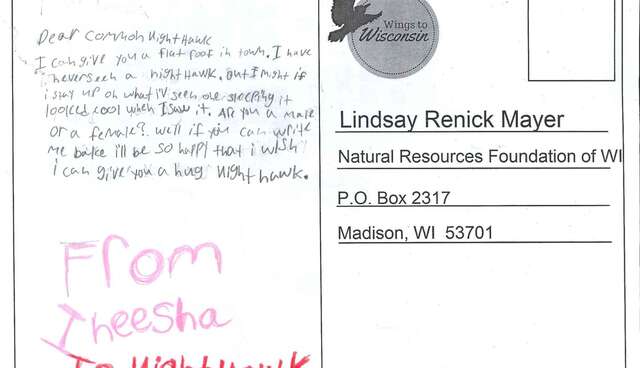 Dear Common Night Hawk
I can give you a flat roof in town. I have
never seen a night Hawk. but I might if
i stay up oh what i'v seen one sleeping it
looked cool when I saw it. Are you a male
or a female? well if you can write
me bake i'll be so happy that i wish
i can give you a hug Night hawk.
From
Iheesha
To Night Hawk
Wings to
Wisconsin
Lindsay Renick Mayer
Natural Resources Foundation of WI
P.O. Box 2317
Madison, WI 53701